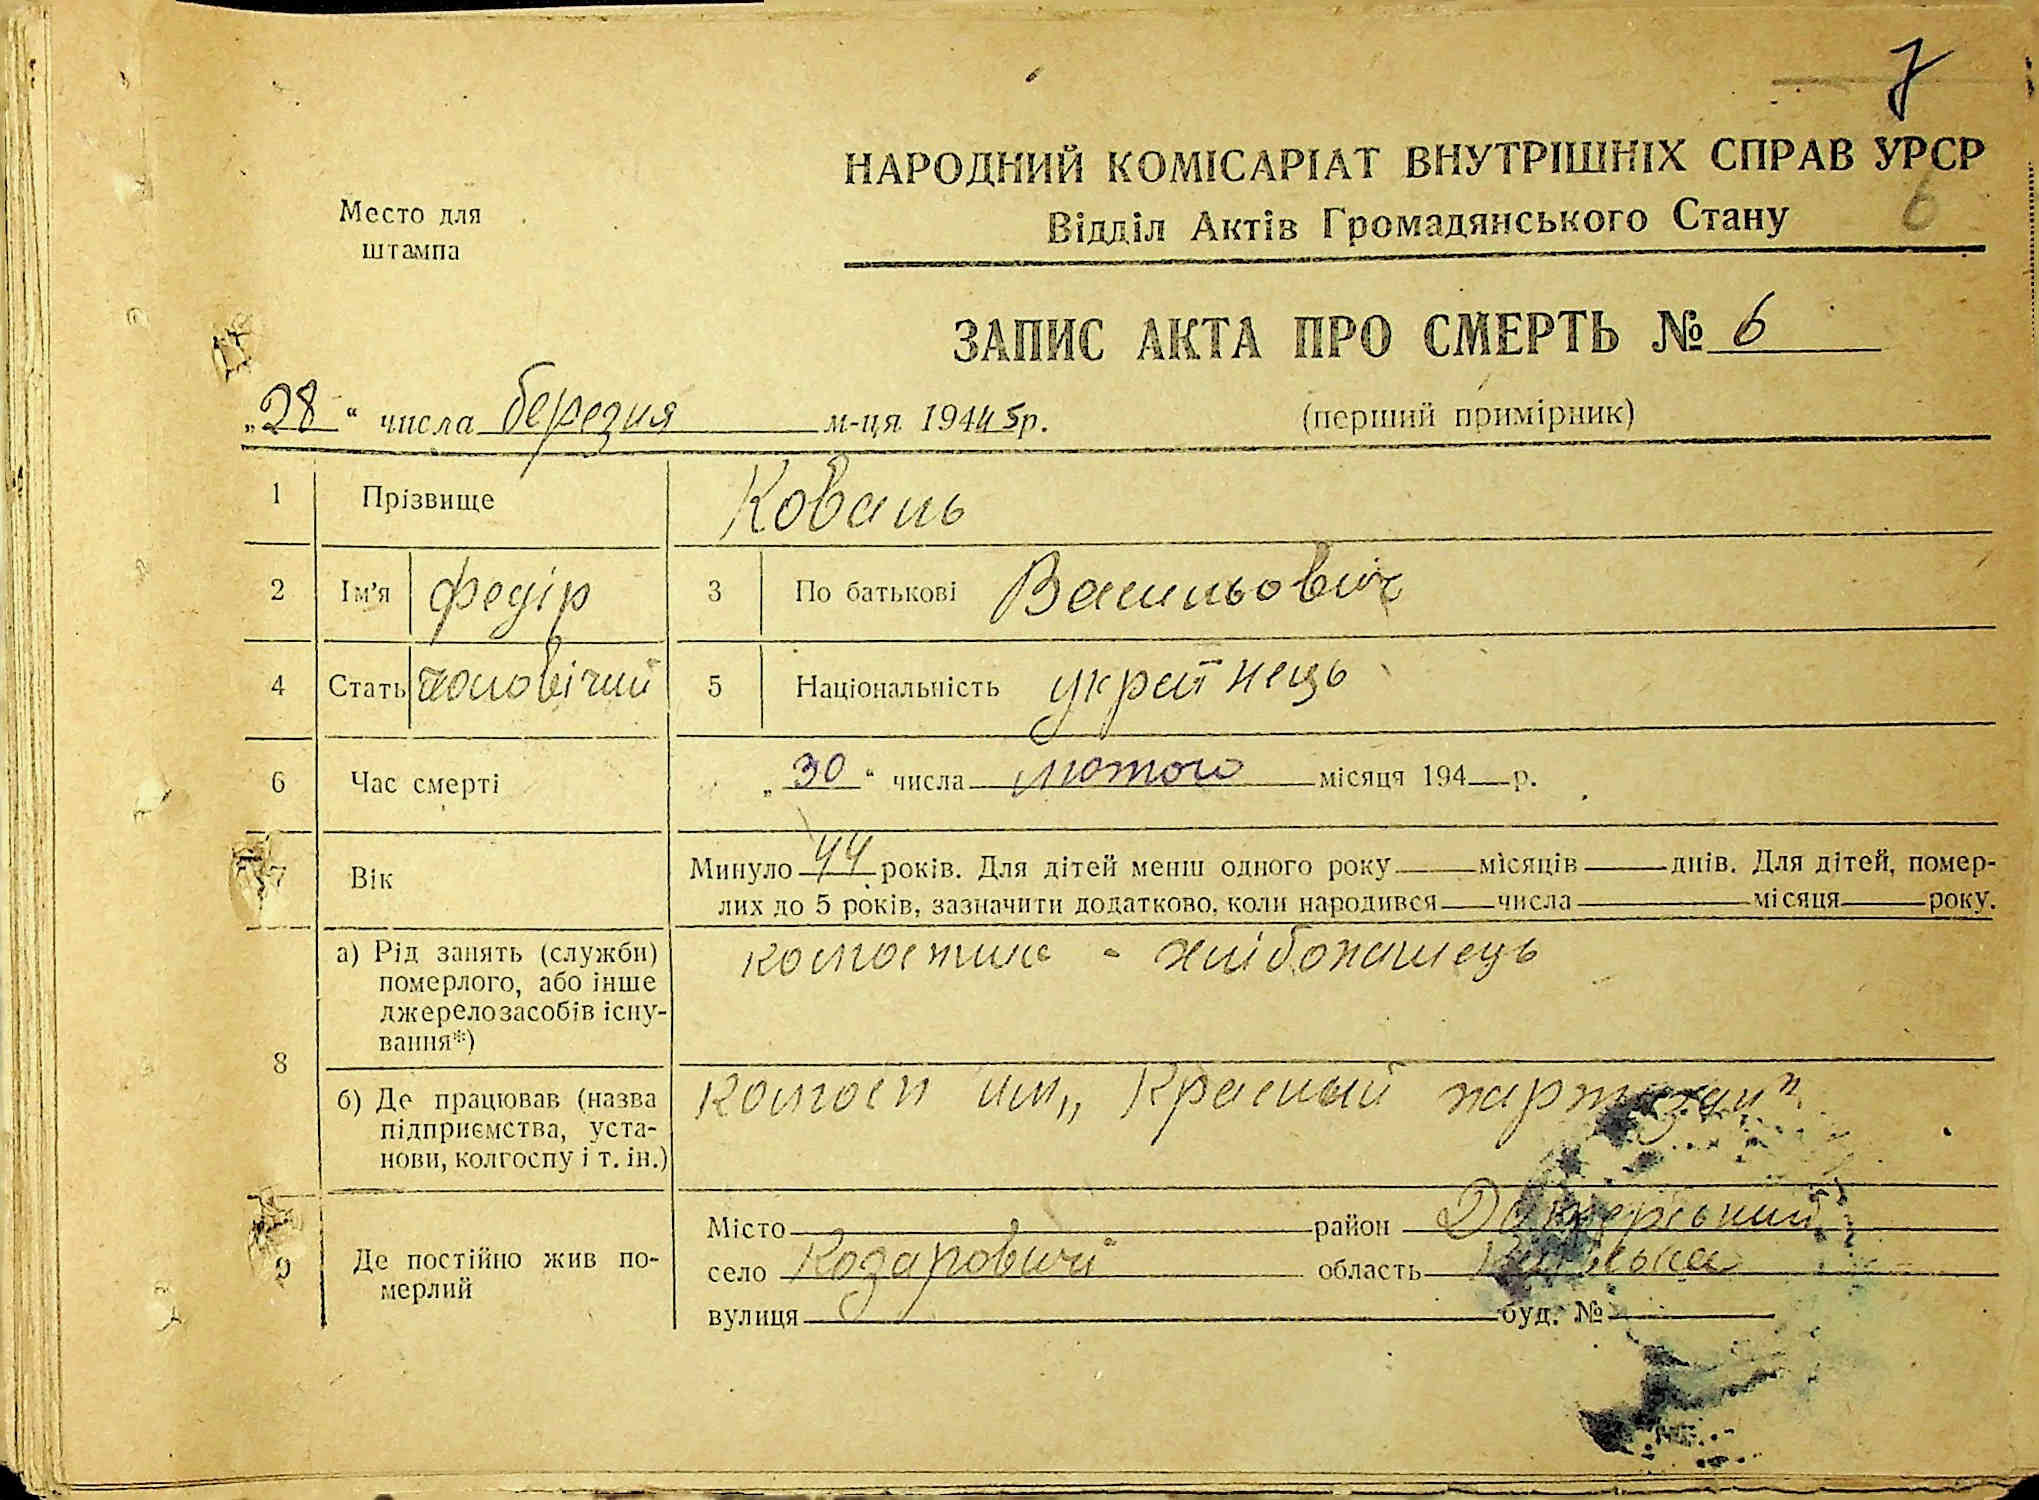 7
НАРОДНИЙ КОМІСАРІАТ ВНУТРІШНІХ СПРАВ УРСР
6
Место для
штампа
Відділ Актів Громадянського Стану
ЗАПИС АКТА ПРО СМЕРТЬ № 6
„28“ числа березня м-ця 1945р.
(перший примірник)
1 Прізвище Коваль
2 Ім'я Федір 3 По батькові Васильович
4 Стать чоловічий 5 Національність українець
6 Час смерті „30“ числа лютого місяця 194 р.
7 Вік Минуло 44 років. Для дітей менш одного року місяців днів. Для дітей, помер-
лих до 5 років, зазначити додатково, коли народився числа місяця року.
8 а) Рід занять (служби) померлого, або інше джерело засобів існу-вання*) колгоспник - хлібопашець
б) Де працював (назва підприємства, уста-нови, колгоспу і т. ін.) Колгосп им „Красный партизан"
9 Де постійно жив по-мерлий
Місто район Димерський
село Козаровичі область Київська
вулиця буд. №